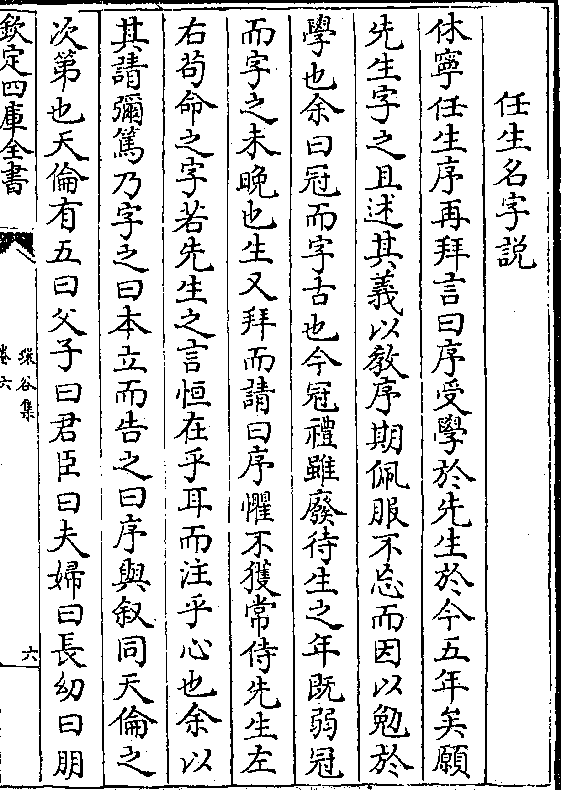 任生名字説
休寧任生序再拜言曰序受學於先生於今五年矣願
先生字之且述其義以教序期佩服不忘而因以勉於
學也余曰冠而字古也今冠禮雖廢待生之年既弱冠
而字之未晚也生又拜而請曰序懼不獲常侍先生左
右苟命之字若先生之言恒在乎耳而注乎心也余以
其請彌篤乃字之曰本立而告之曰序與叙同天倫之
次第也天倫有五曰父子曰君臣曰夫婦曰長幼曰朋
欽定四庫全書
環谷集
卷六
六